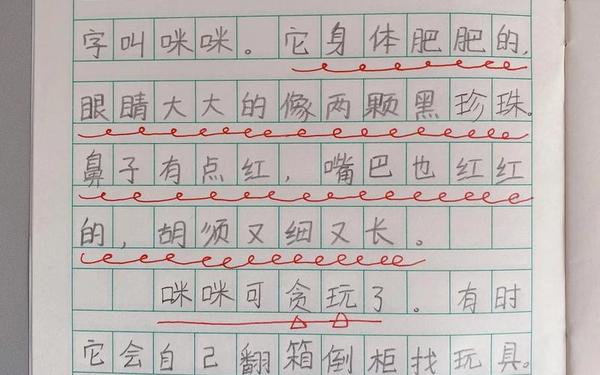 字叫咪咪。它身体肥肥的,
眼睛大大的像两颗黑珍珠。
鼻子有点红，嘴巴也红红
的，胡须又细又长。
咪咪可贪玩了。有时
它会自己翻箱倒柜找玩具。